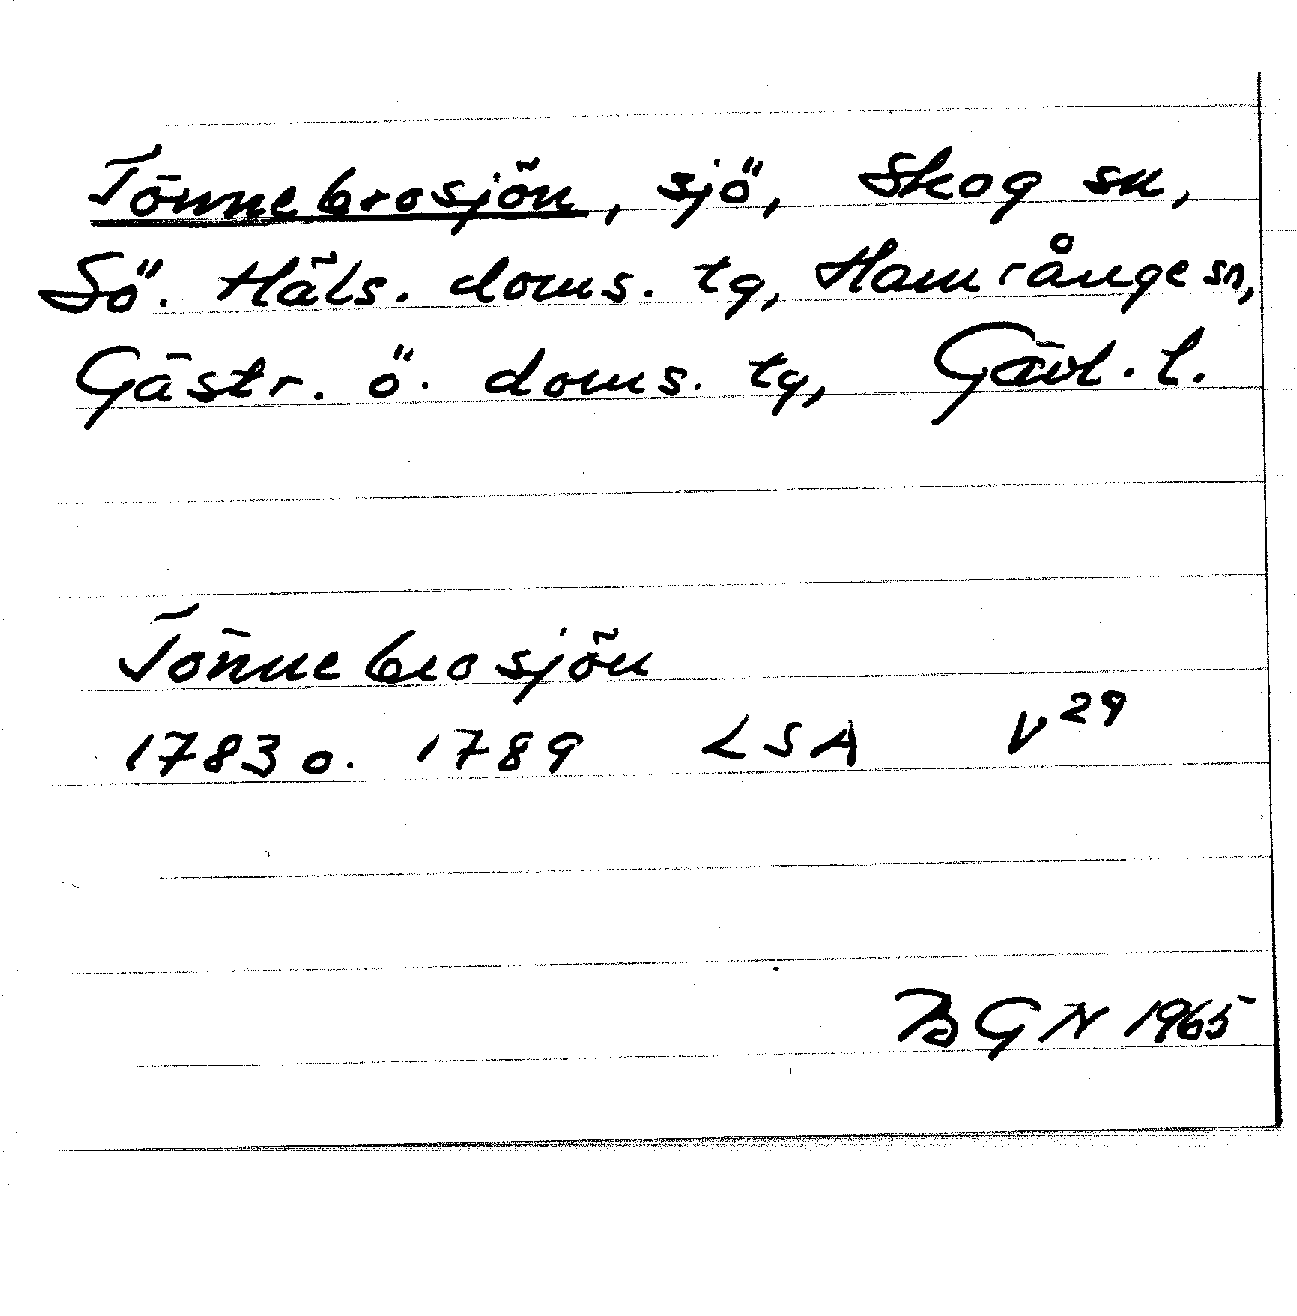 Tönnebrosjön, sjö, Skog sn,
Sö. Häls. doms. tg, Hamrånge sn,
Gästr. ö. doms. tg, Gävl. l.
Tönnebrosjön
1783 o. 1789 LSA V 29
BGN 1965